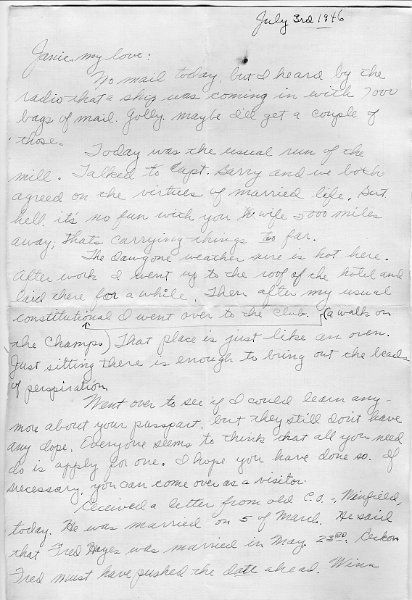 July 3rd 1946
Janie my love:
No mail today, but I heard by the
radio that a ship was coming in with 7000
bags of mail. Golly maybe I'll get a couple of
those.
Today was the usual run of the
mill. Talked to Capt. Sarry and we both
agreed on the virtues of married life. But
hell it's no fun with you & wife 3000 miles
away, that's carrying things too far.
The dawgone weather sure is hot here.
After work I went up to the roof of the hotel and
laid there for a while. Then after my usual
constitutional I went over to the club. (a walk on
the Champs) That place is just like an oven.
Just sitting there is enough to bring out the beads
of perspiration.
Went over to see if I could learn any-
more about your passport, but they still don't have
any dope. Everyone seems to think that all you need
do is apply for one. I hope you have done so. If
necessary, you can come over as a visitor.
Received a letter from old C.O., Winfield,
today. He was married on 5 of March. He said
that Fred Hayes was married in May 23rd. Reckon
Fred must have pushed the date ahead. Winn